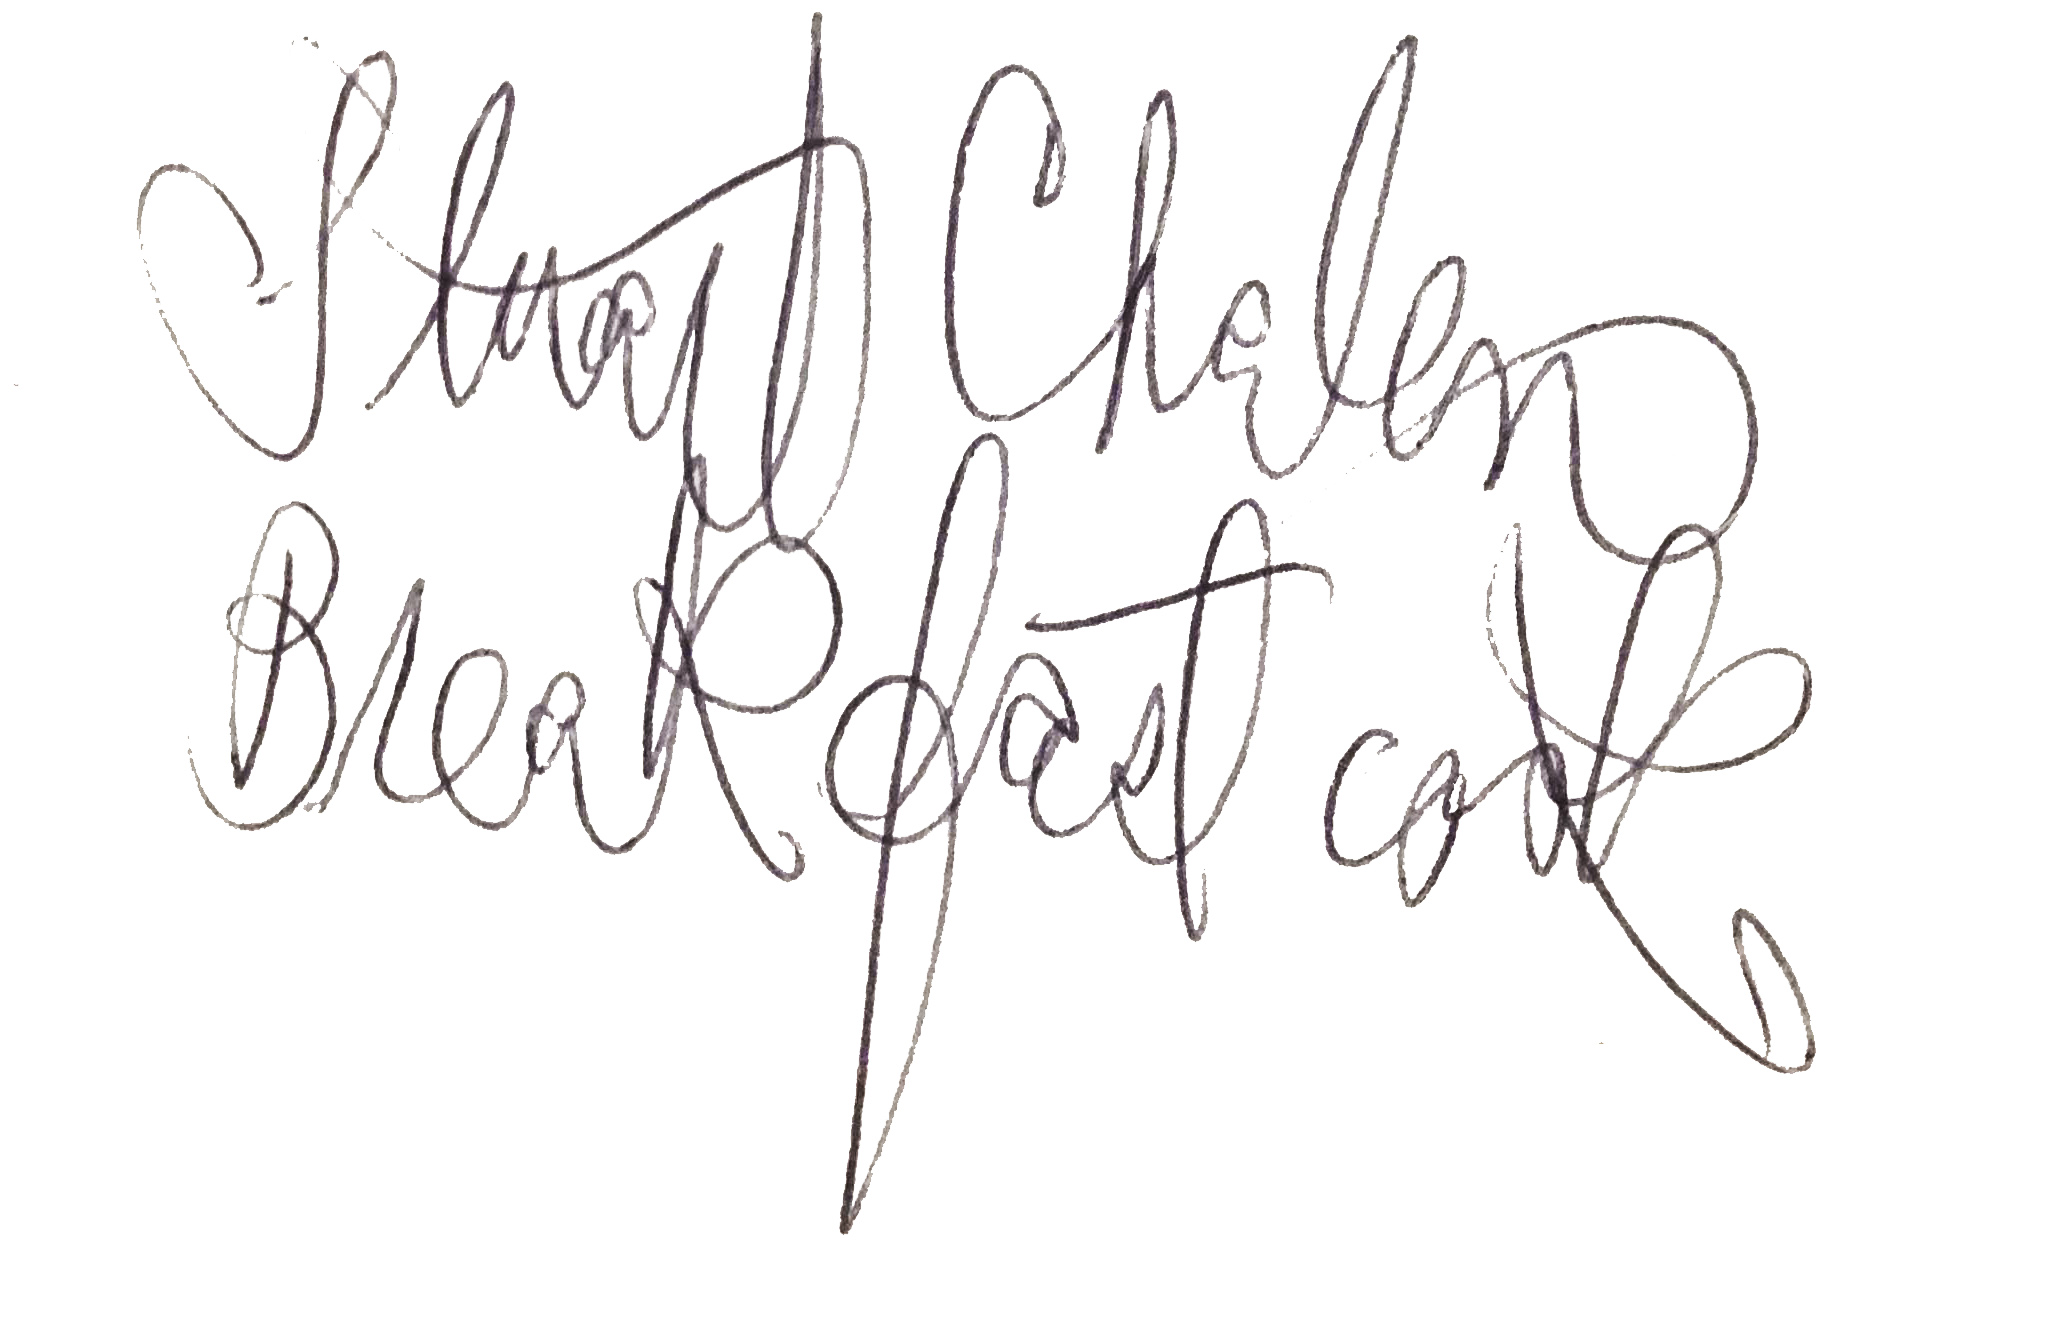 Stuart Chalen
Breakfast